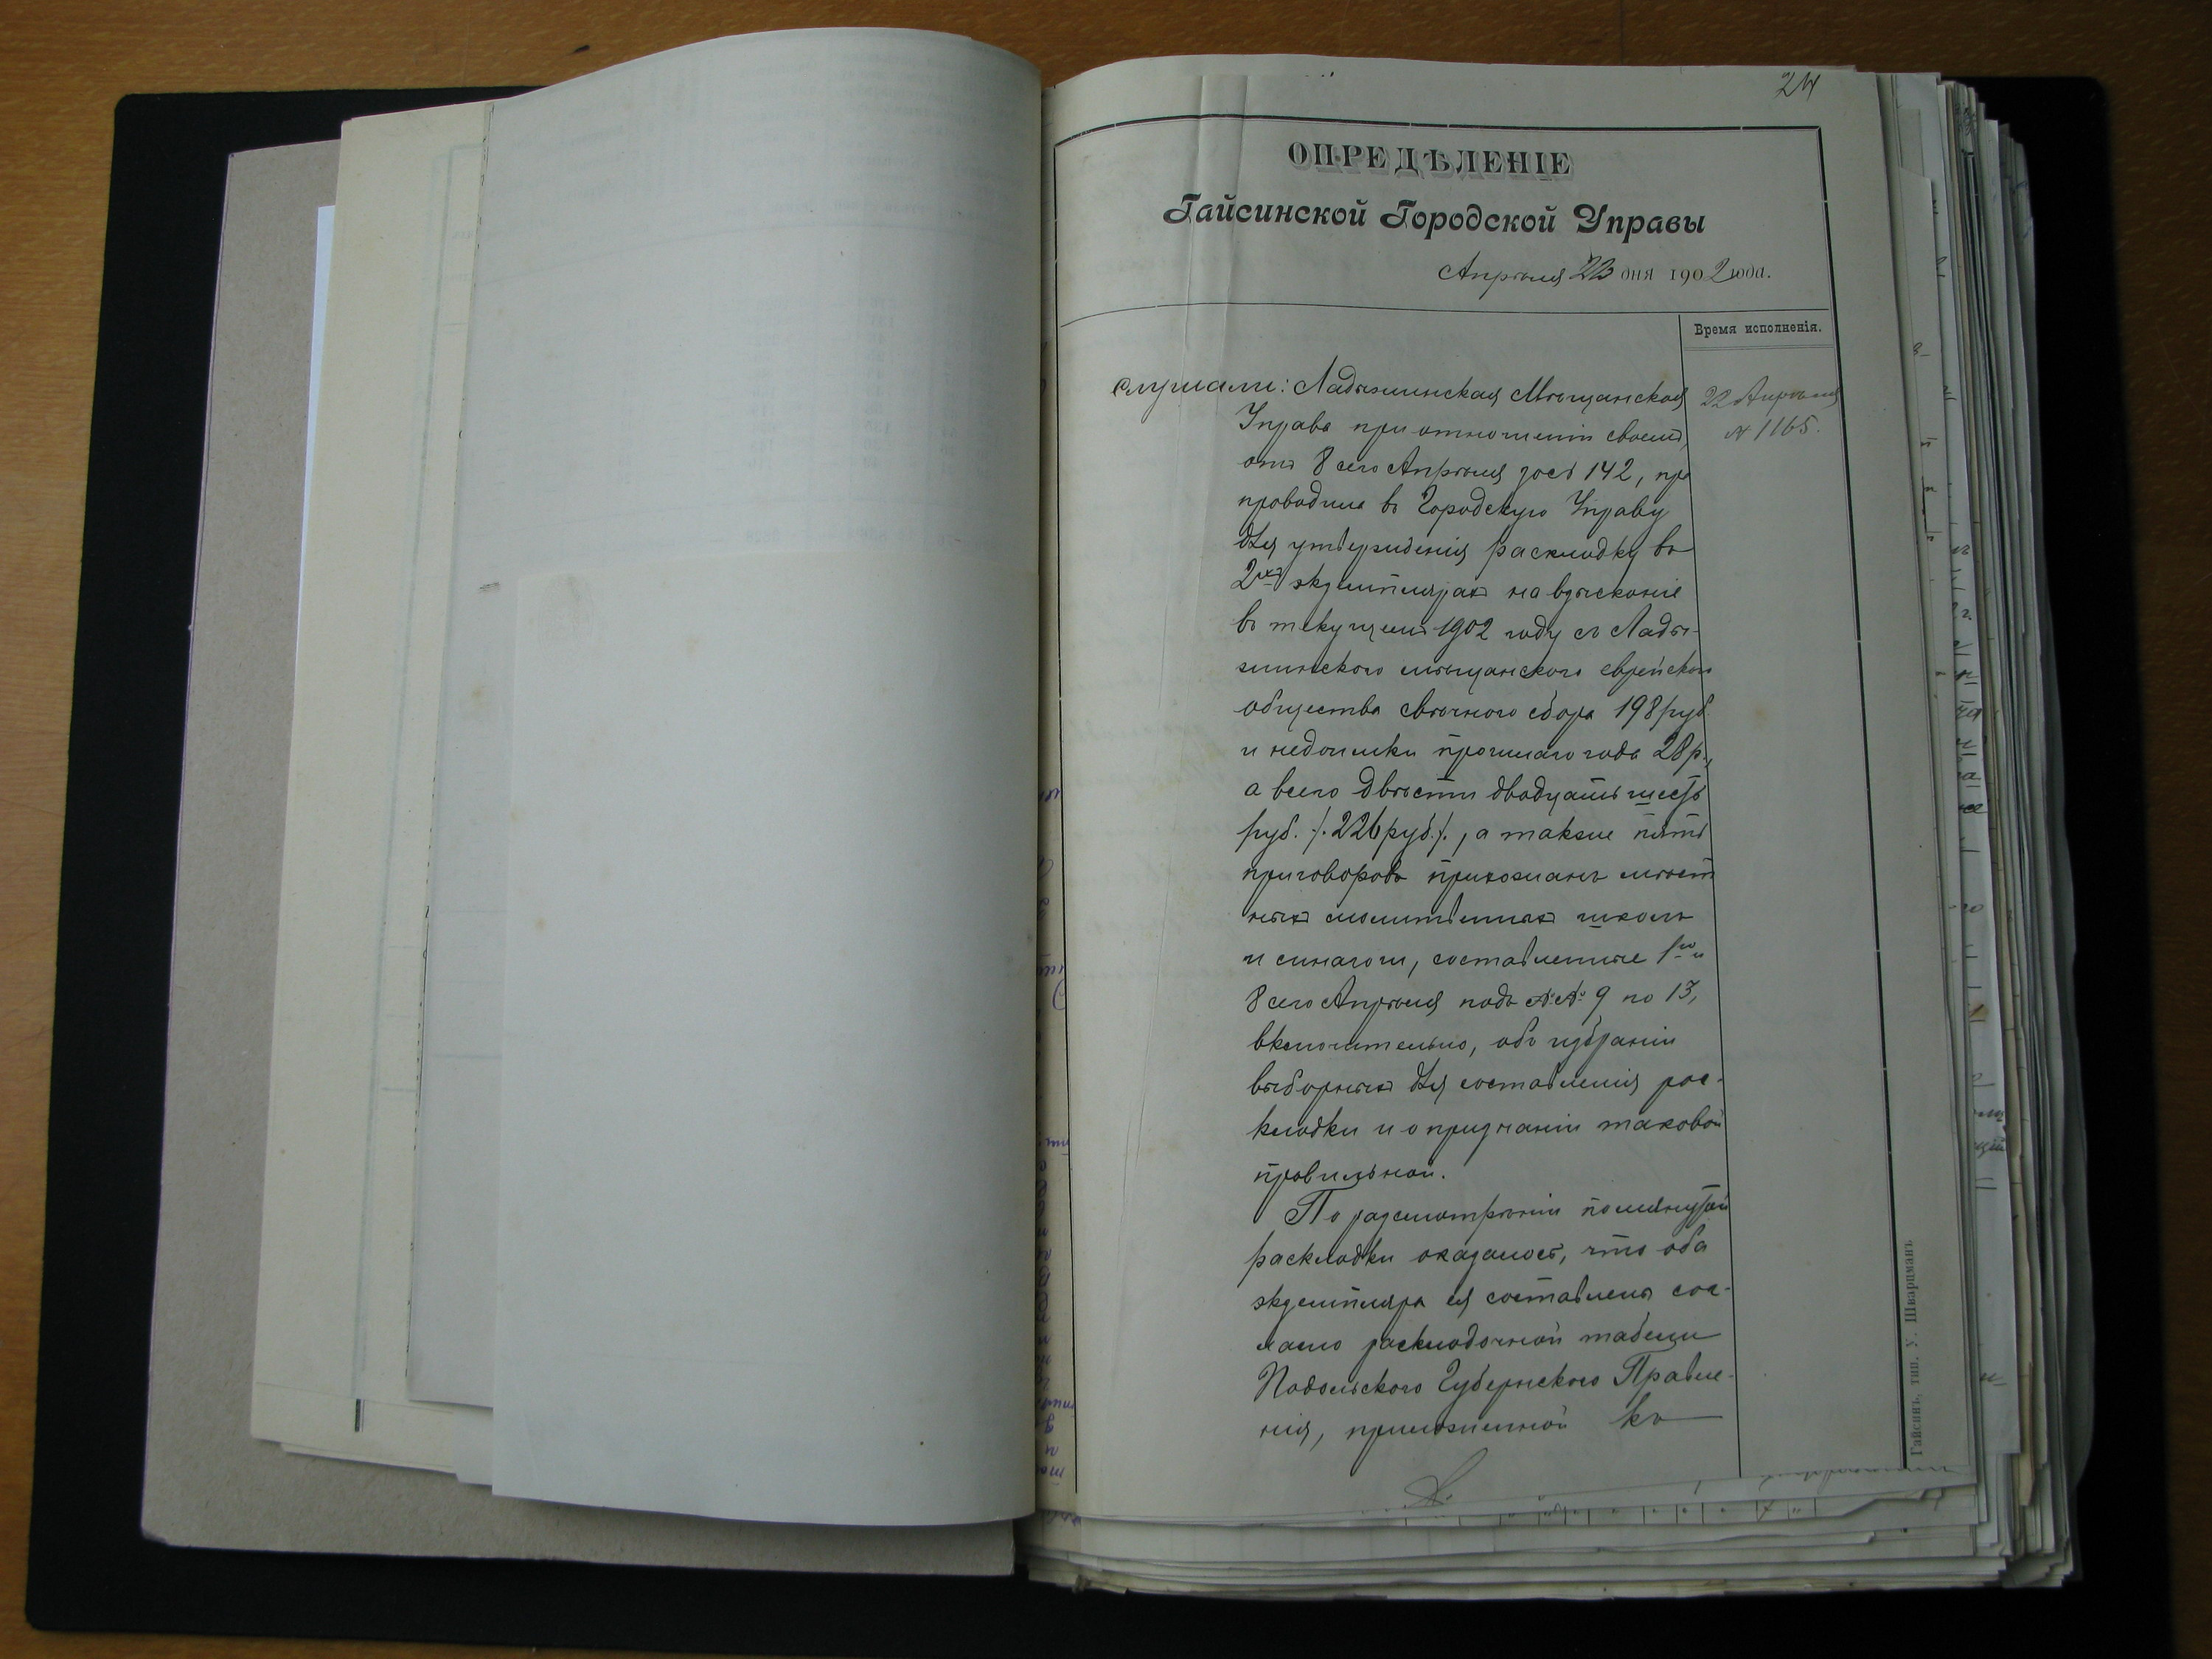 24
ОПРЕДѢЛЕНІЕ
Гайсинской Городской Управы
Апрѣля 23 дня 1902 года.
Время исполненія.
22 Апрѣля
№ 1165.
Слушали: Ладыжинская Мѣщанская
Управа при отношеніи своемъ,
отъ 8 сего Апрѣля за № 142, пре
проводила въ Городскую Управу
для утвержденія раскладку въ
2хъ экземплярахъ на взысканіе
въ текущемъ 1902 году съ Лады-
жинскаго мѣщанскаго еврейскаго
общества свѣчнаго сбора 198 руб.
и недоимки прошлаго года 28 р.,
а всего двѣсти двадцать шесть
руб. /.226 руб./., а также пять
приговоровъ прихожанъ мѣст
ныхъ молитвенныхъ школъ
и синагоги, составленные 1го и
8 сего Апрѣля подъ №№ 9 по 13,
включительно, объ избраніи
выборныхъ для составленія рас-
кладки и о признаніи таковой
правильной.
По разсмотрѣніи помянутой
раскладки оказалось, что оба
экземпляра ея составлены сог-
ласно раскладочной табели
Подольскаго Губернскаго Правле-
нія, приложенной къ
Гайсинъ, тип. У. Шварцманъ.